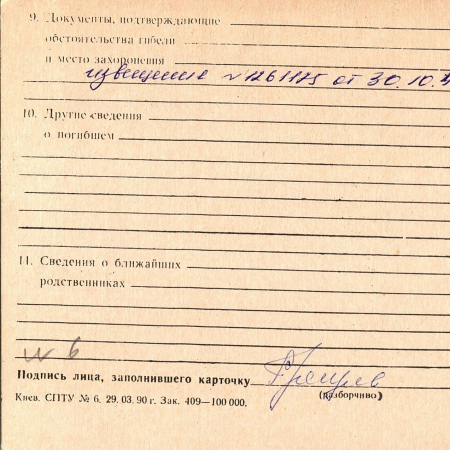 9. Документы, подтверждающие
обстоятельства гибели
и место захоронения
извещение № 1261175 от 30.10.
10. Другие сведения
о погибшем
11. Сведения о ближайших
родственниках
Подпись лица, заполнившего карточку
Киев. СПТУ № 6. 29. 03. 90 г. Зак. 409—100 000.
(разборчиво)